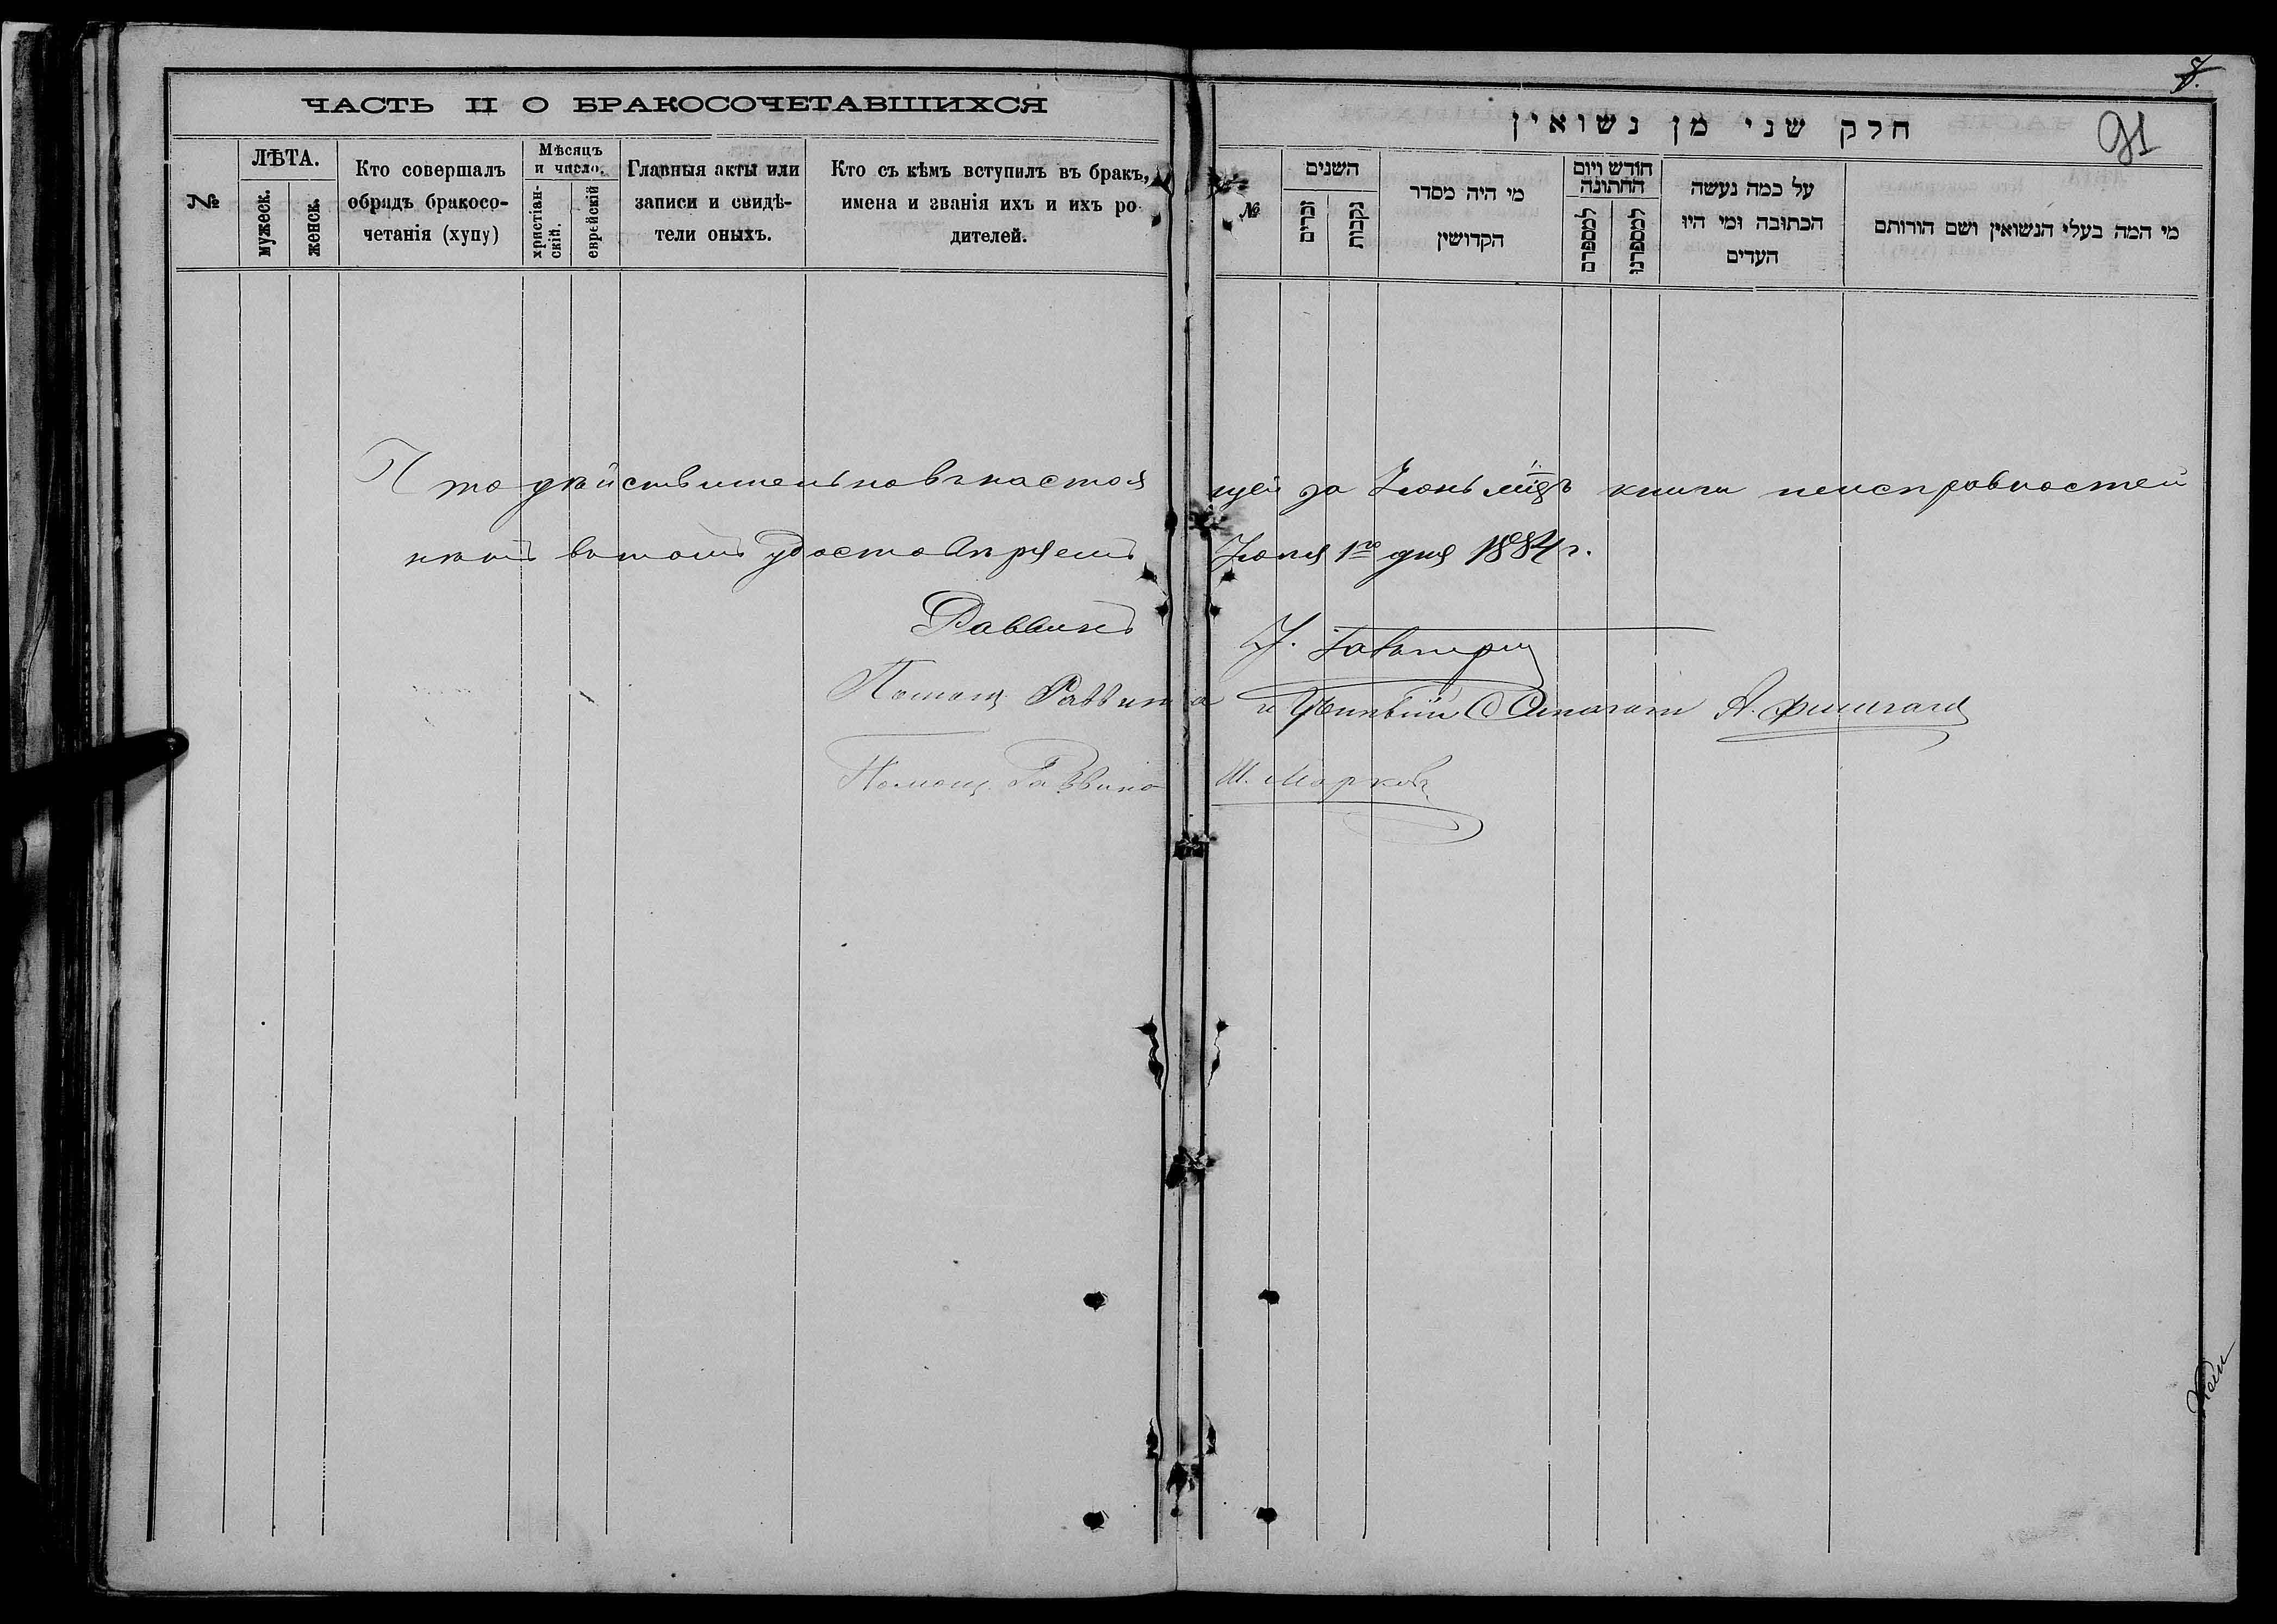 ЧАСТЬ II О БРАКОСОЧЕТАВШИХСЯ
№
ЛѢТА.
мужеск.
женск.
Кто совершалъ
обрядъ бракосо-
четанія (хупу)
Мѣсяцъ
и число.
христіан-
скій.
еврейскій
Главныя акты или
записи и свидѣ-
тели оныхъ.
Кто съ кѣмъ вступилъ въ бракъ,
имена и званія ихъ и ихъ ро-
дителей.
7.
91
חלק שני מן נשואין
№
השנים
זכרים
נקבות
מי היה מסדר
הקדושין
חודש ויום
החתונה
למספרם
למספרנו
על כמה נעשה
הכתובה ומי היו
העדים
מי המה בעלי הנשואין ושם הורותם
Что дѣйствительно въ настоя щей за Іюнь мцъ книги неисправностей
нѣтъ въ томъ удостовѣряемъ Іюля 1го дня 1884 г.
Раввинъ
Помощ Раввина и А.
Помощ. Раввина Ш. Марковъ